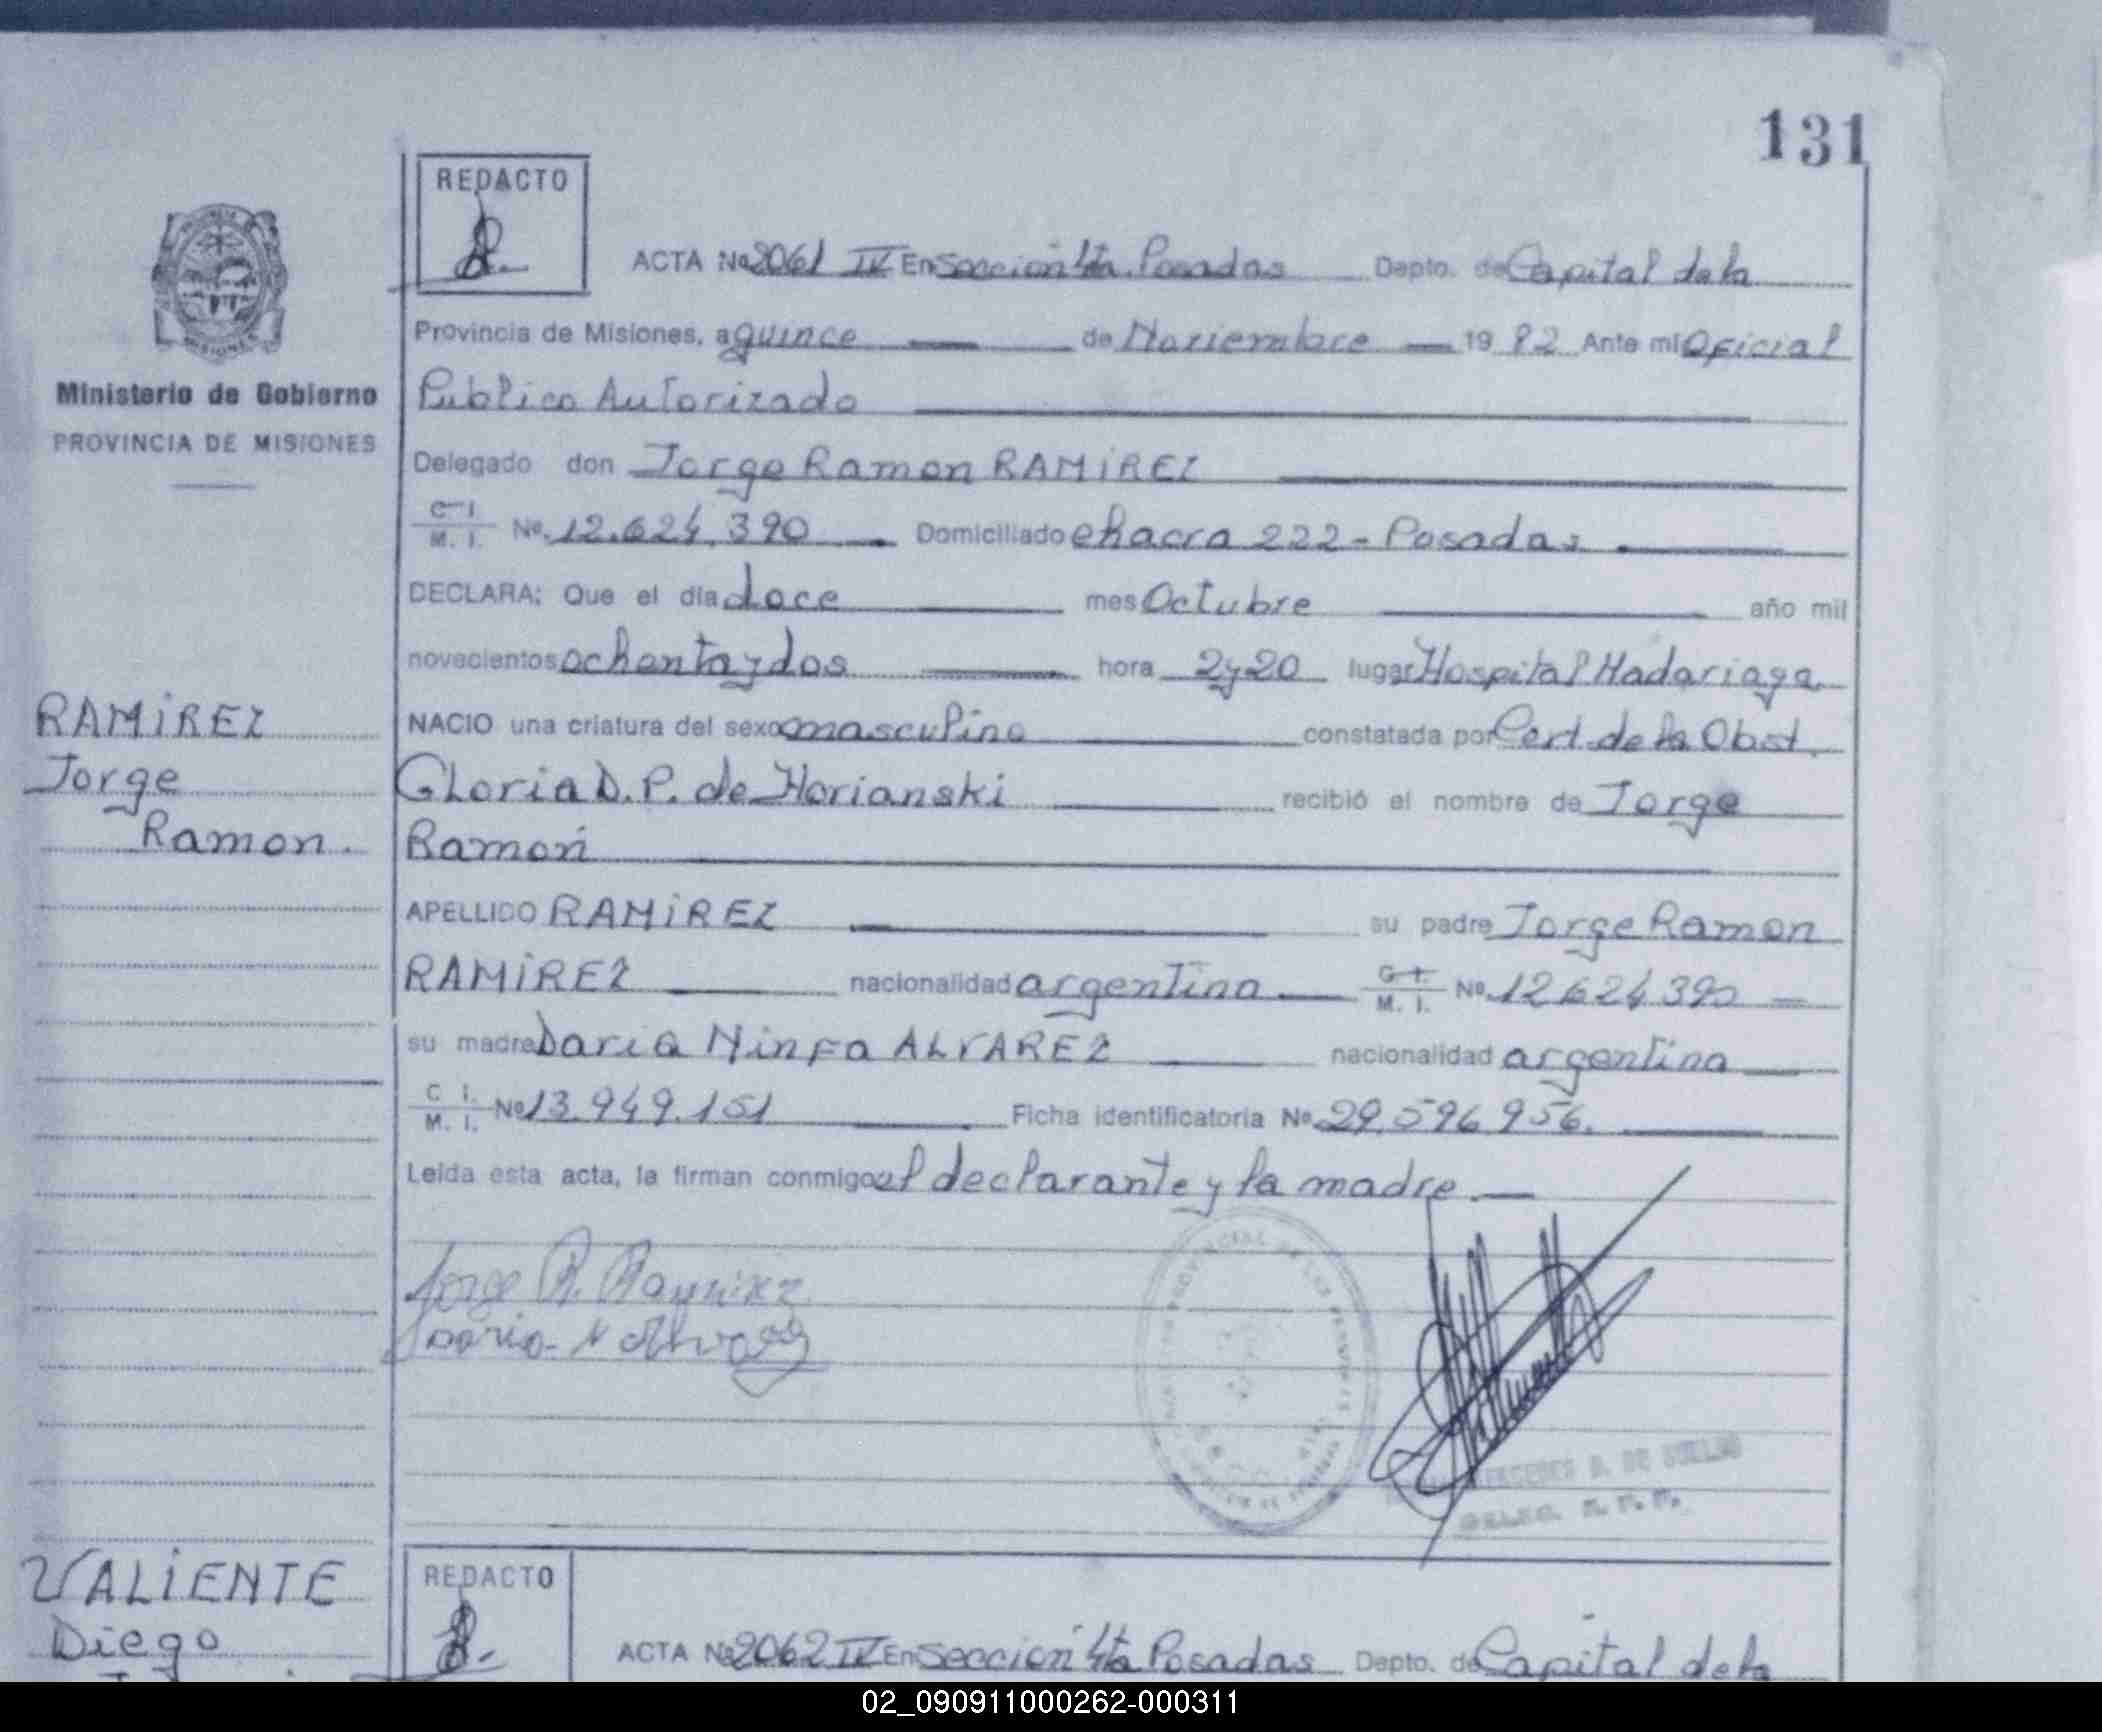 131
REDACTO
ACTA No 2061 IV En Sección 4ta Posadas Depto. de Capital de la
Provincia de Misiones, a quince de Noviembre 1982 Ante mi Oficial
Publico Autorizado
Delegado don Jorge Ramon RAMIREZ
C. I.
M. I. No. 12.624.390 Domiciliado chacra 222 - Posadas
DECLARA: Que el día doce mes Octubre año mil
novecientos ochenta y dos hora 2y20 lugar Hospital Madariaga
NACIO una criatura del sexo masculino constatada por Cert. de la Obst.
Gloria D. P. de Horianski recibió el nombre de Jorge
Ramon
APELLIDO RAMIREZ su padre Jorge Ramon
RAMIREZ nacionalidad argentina C. I. M. I. No. 12.624.390
su madre Daria Ninfa ALVAREZ nacionalidad argentina
C. I.
M. I. No 13.949.151 Ficha identificatoria No. 29.596.956.
Leida esta acta, la firman conmigo el declarante y la madre.
Jorge R. Ramirez
Daria N Alvarez
Ministerio de Gobierno
PROVINCIA DE MISIONES
RAMIREZ
Jorge
Ramon.
VALIENTE
Diego
REDACTO
ACTA No 2062 IV En Sección 4ta Posadas Depto. de Capital de la
02_090911000262-000311